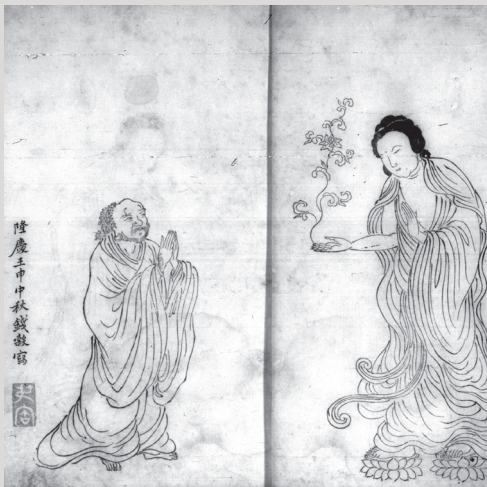 隆慶壬申中秋錢穀寫